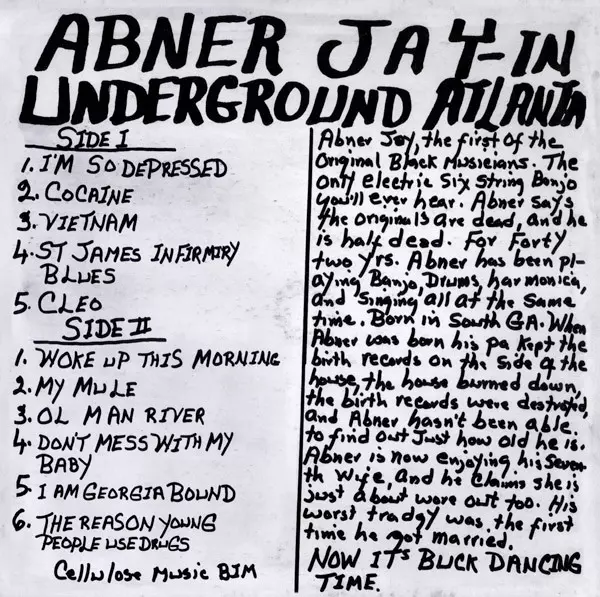 ABNER JAY-IN
UNDERGROUND ATLANTA
SIDE I
1. I'M SO DEPRESSED
2. COCAINE
3. VIETNAM
4. ST JAMES INFIRMIRY
BLUES
5. CLEO
SIDE II
1. WOKE UP THIS MORNING
2. MY MULE
3. OL MAN RIVER
4. DON'T MESS WITH MY
BABY
5. I AM GEORGIA BOUND
6. THE REASON YOUNG
PEOPLE USE DRUGS
Cellulose Music BIM
Abner Jay, the first of the
Original Black Musicians. The
only electric Six String Banjo
you'll ever hear. Abner says
the originals are dead, and he
is half dead. For Forty
two yrs. Abner has been pl-
aying Banjo, Drums, harmonica,
and singing all at the same
time. Born in South GA. When
Abner was born his pa kept the
birth records on the side of the
house, the house burned down,
the birth records were destroyed,
and Abner hasn't been able
to find out just how old he is.
Abner is now enjoying his Seven-
th wife, and he claims she is
just about wore out too. His
worst tradgy was the first
time he got married.
NOW IT'S BUCK DANCING
TIME.